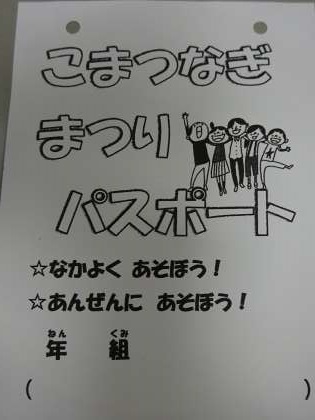 こまつなぎ
まつり
パスポート
☆なかよく あそぼう！
☆あんぜんに あそぼう！
ねん くみ
年 組
( )